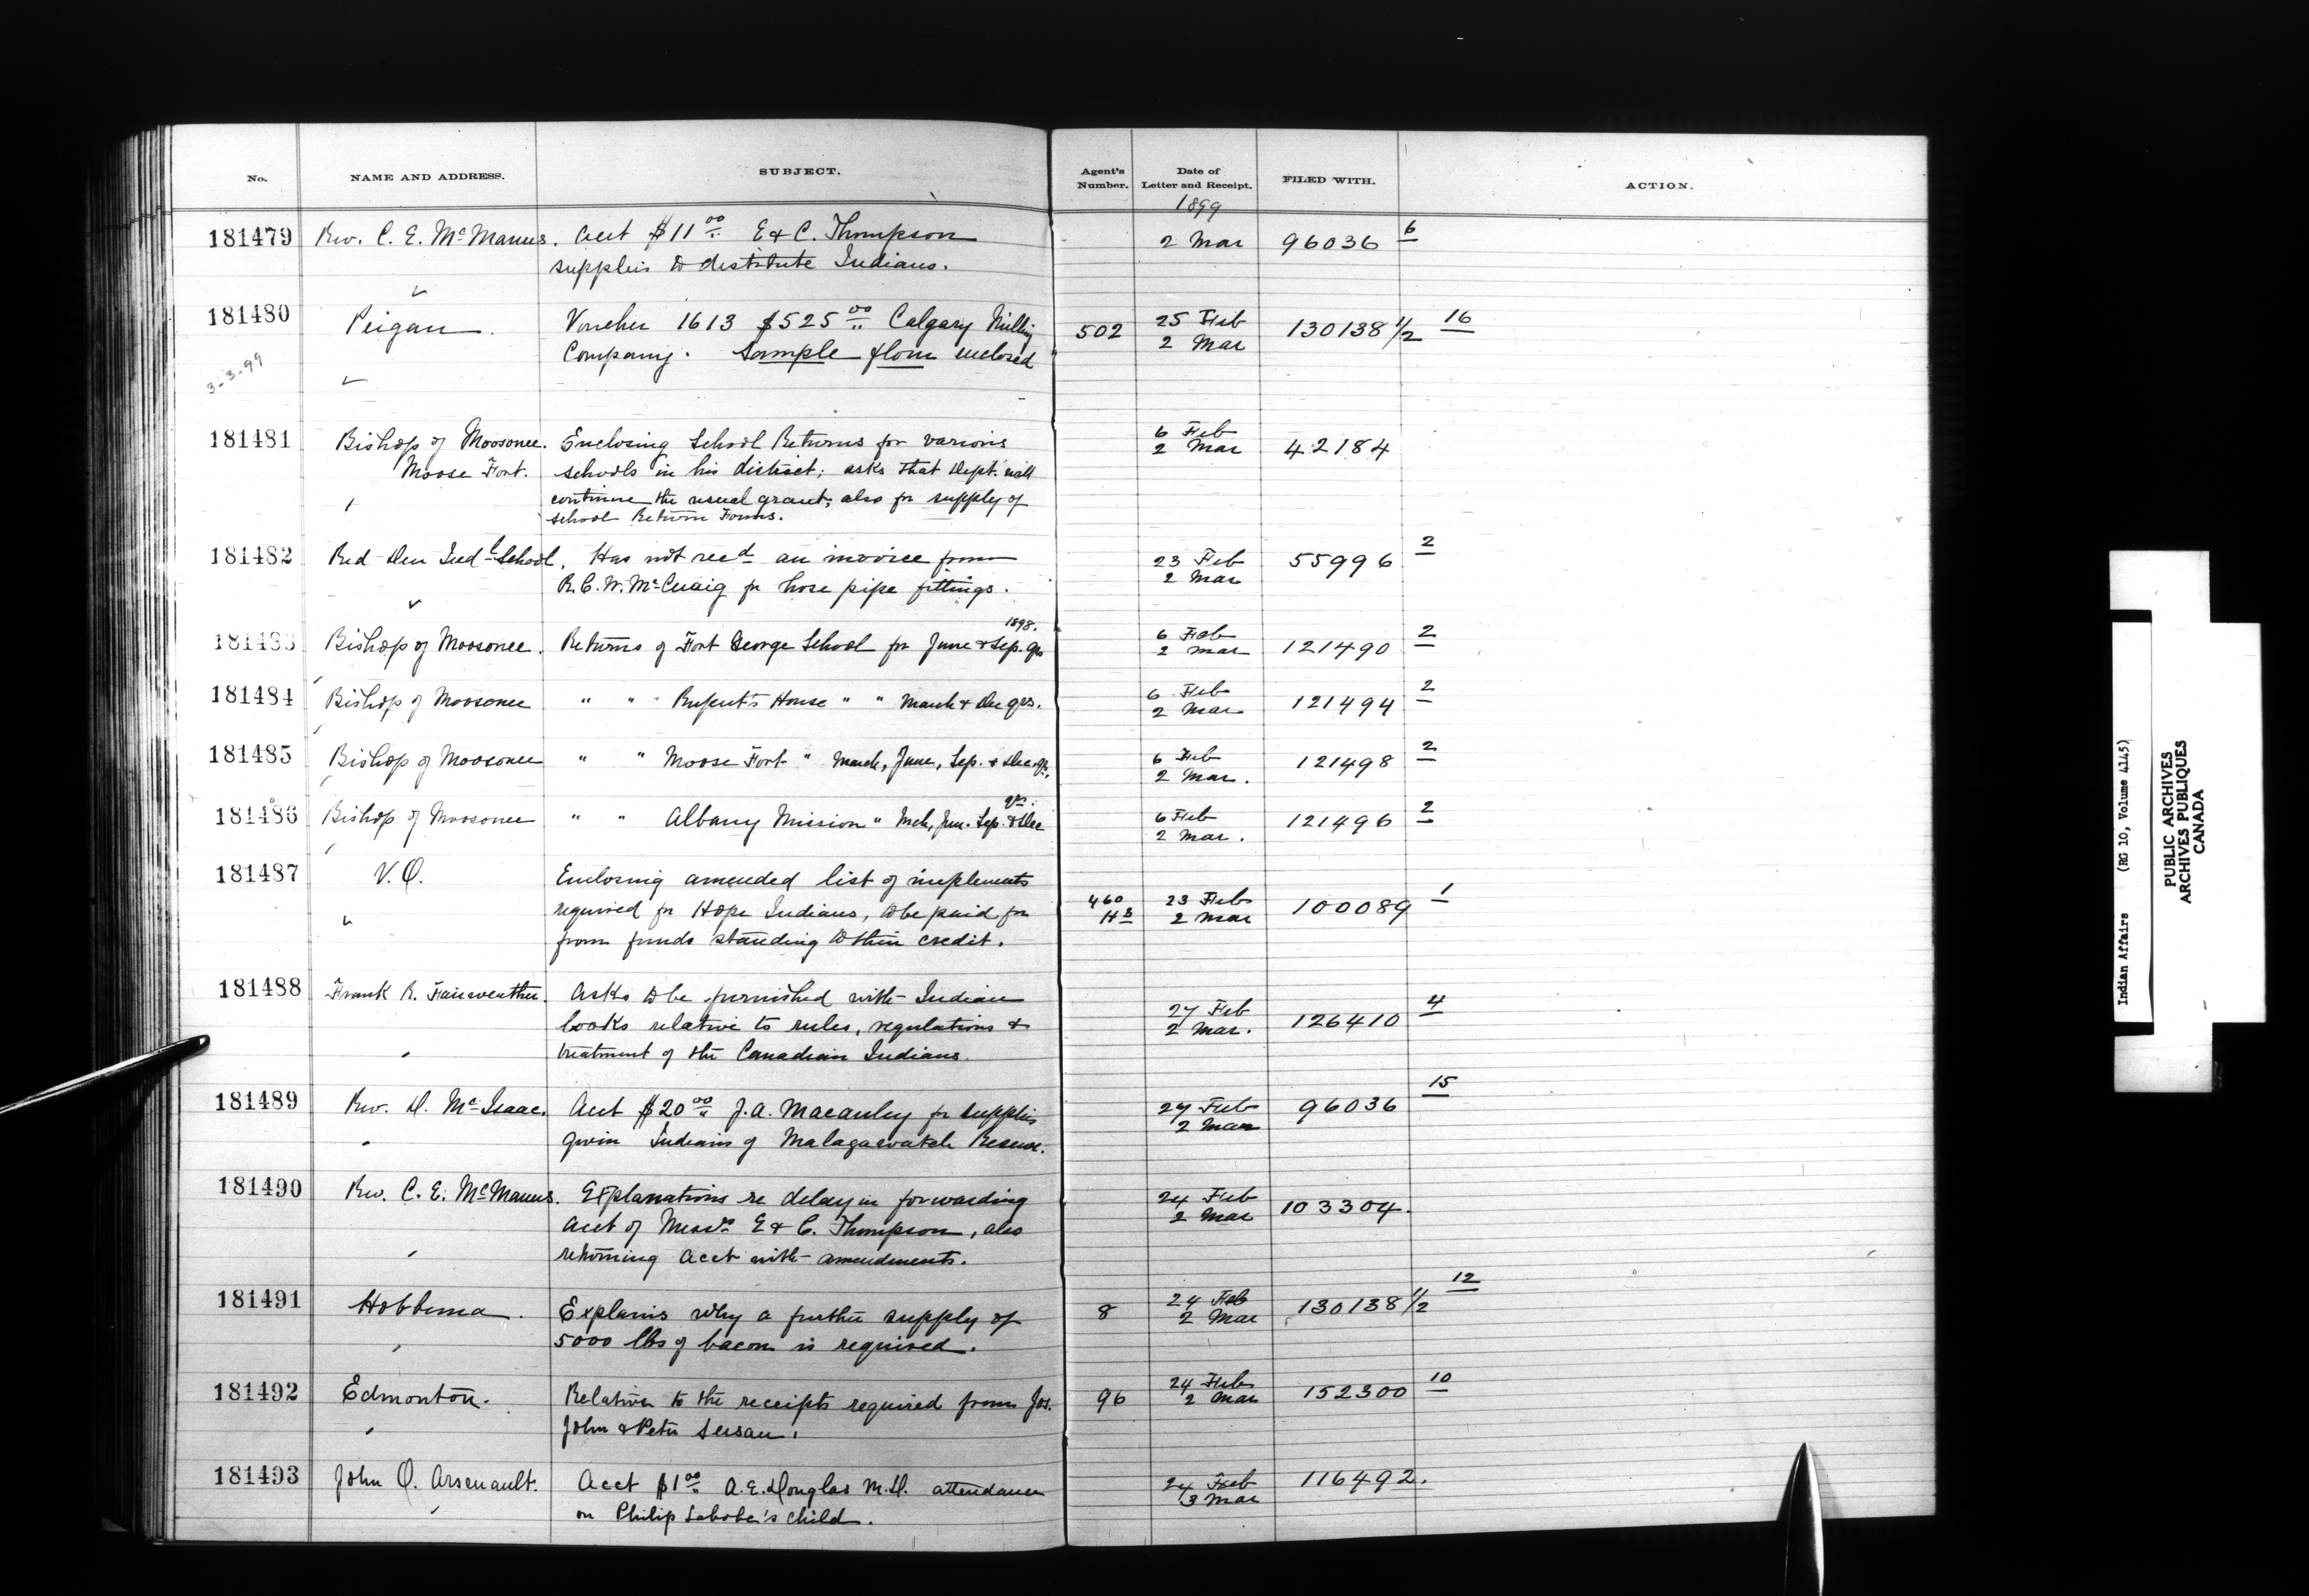 No. NAME AND ADDRESS. SUBJECT. Agent's Number. Date of Letter and Receipt. FILED WITH. ACTION.
1899
181479 Rev. C. E. McManus. Acct $11.00 E & C. Thompson 2 Mar 96036 6
supplies to destitute Indians.
181480 Peigan. Voucher 1613 $525.00 Calgary Milling 502 25 Feb 130138 1/2 16
Company. Sample flour enclosed 2 Mar
3-3-99
181481 Bishop of Moosonee. Enclosing School Returns for various 6 Feb
2 Mar 42184
Moose Fort. schools in his district; asks that Dept. will
continue the usual grant; also for supply of
school Return Forms.
181482 Red Deer Indl School. Has not recd an invoice from 23 Feb 55996 2
R. C. W. McCuaig for hose pipe fittings. 2 Mar
1898.
181483 Bishop of Moosonee. Returns of Fort George School for June & Sep. qrs 6 Feb
2 Mar 121490 2
181484 Bishop of Moosonee " " Rupert's House " " March & Dec qrs. 6 Feb
2 Mar 121494 2
181485 Bishop of Moosonee " " Moose Fort " March, June, Sep. & Dec qr. 6 Feb
2 Mar. 121498 2
qrs.
181486 Bishop of Moosonee " " Albany Mission " Mch, Jun. Sep. & Dec 6 Feb
2 Mar. 121496 2
181487 V.O. Enclosing amended list of implements
required for Hope Indians, to be paid for 460 23 Feb 100089 1
H3 2 Mar
from funds standing to their credit.
181488 Frank R. Fairweather. Asks to be furnished with Indian
books relative to rules, regulations & 27 Feb 126410 4
2 Mar.
treatment of the Canadian Indians.
181489 Rev. D. McIsaac. Acct $20.00 J. A. Macauley for supplies 27 Feb 96036 15
given Indians of Malagawatch Reserve. 2 Mar
181490 Rev. C. E. McManus. Explanations re delay in forwarding 24 Feb 103304.
2 Mar
acct of Messrs E & C. Thompson, also
returning acct with amendments.
181491 Hobbema. Explains why a further supply of 8 24 Feb 130138 1/2 12
2 Mar
5000 lbs of bacon is required.
181492 Edmonton. Relative to the receipts required from Jos. 96 24 Feb 152300 10
2 Mar
John & Peter
181493 John O. Arsenault. Acct $1.00 A. E. Douglas M.D. attendance 24 Feb 116492.
3 Mar
on Philip Labobe's child.
Indian Affairs (RG 10, Volume 4145)
PUBLIC ARCHIVES
ARCHIVES PUBLIQUES
CANADA